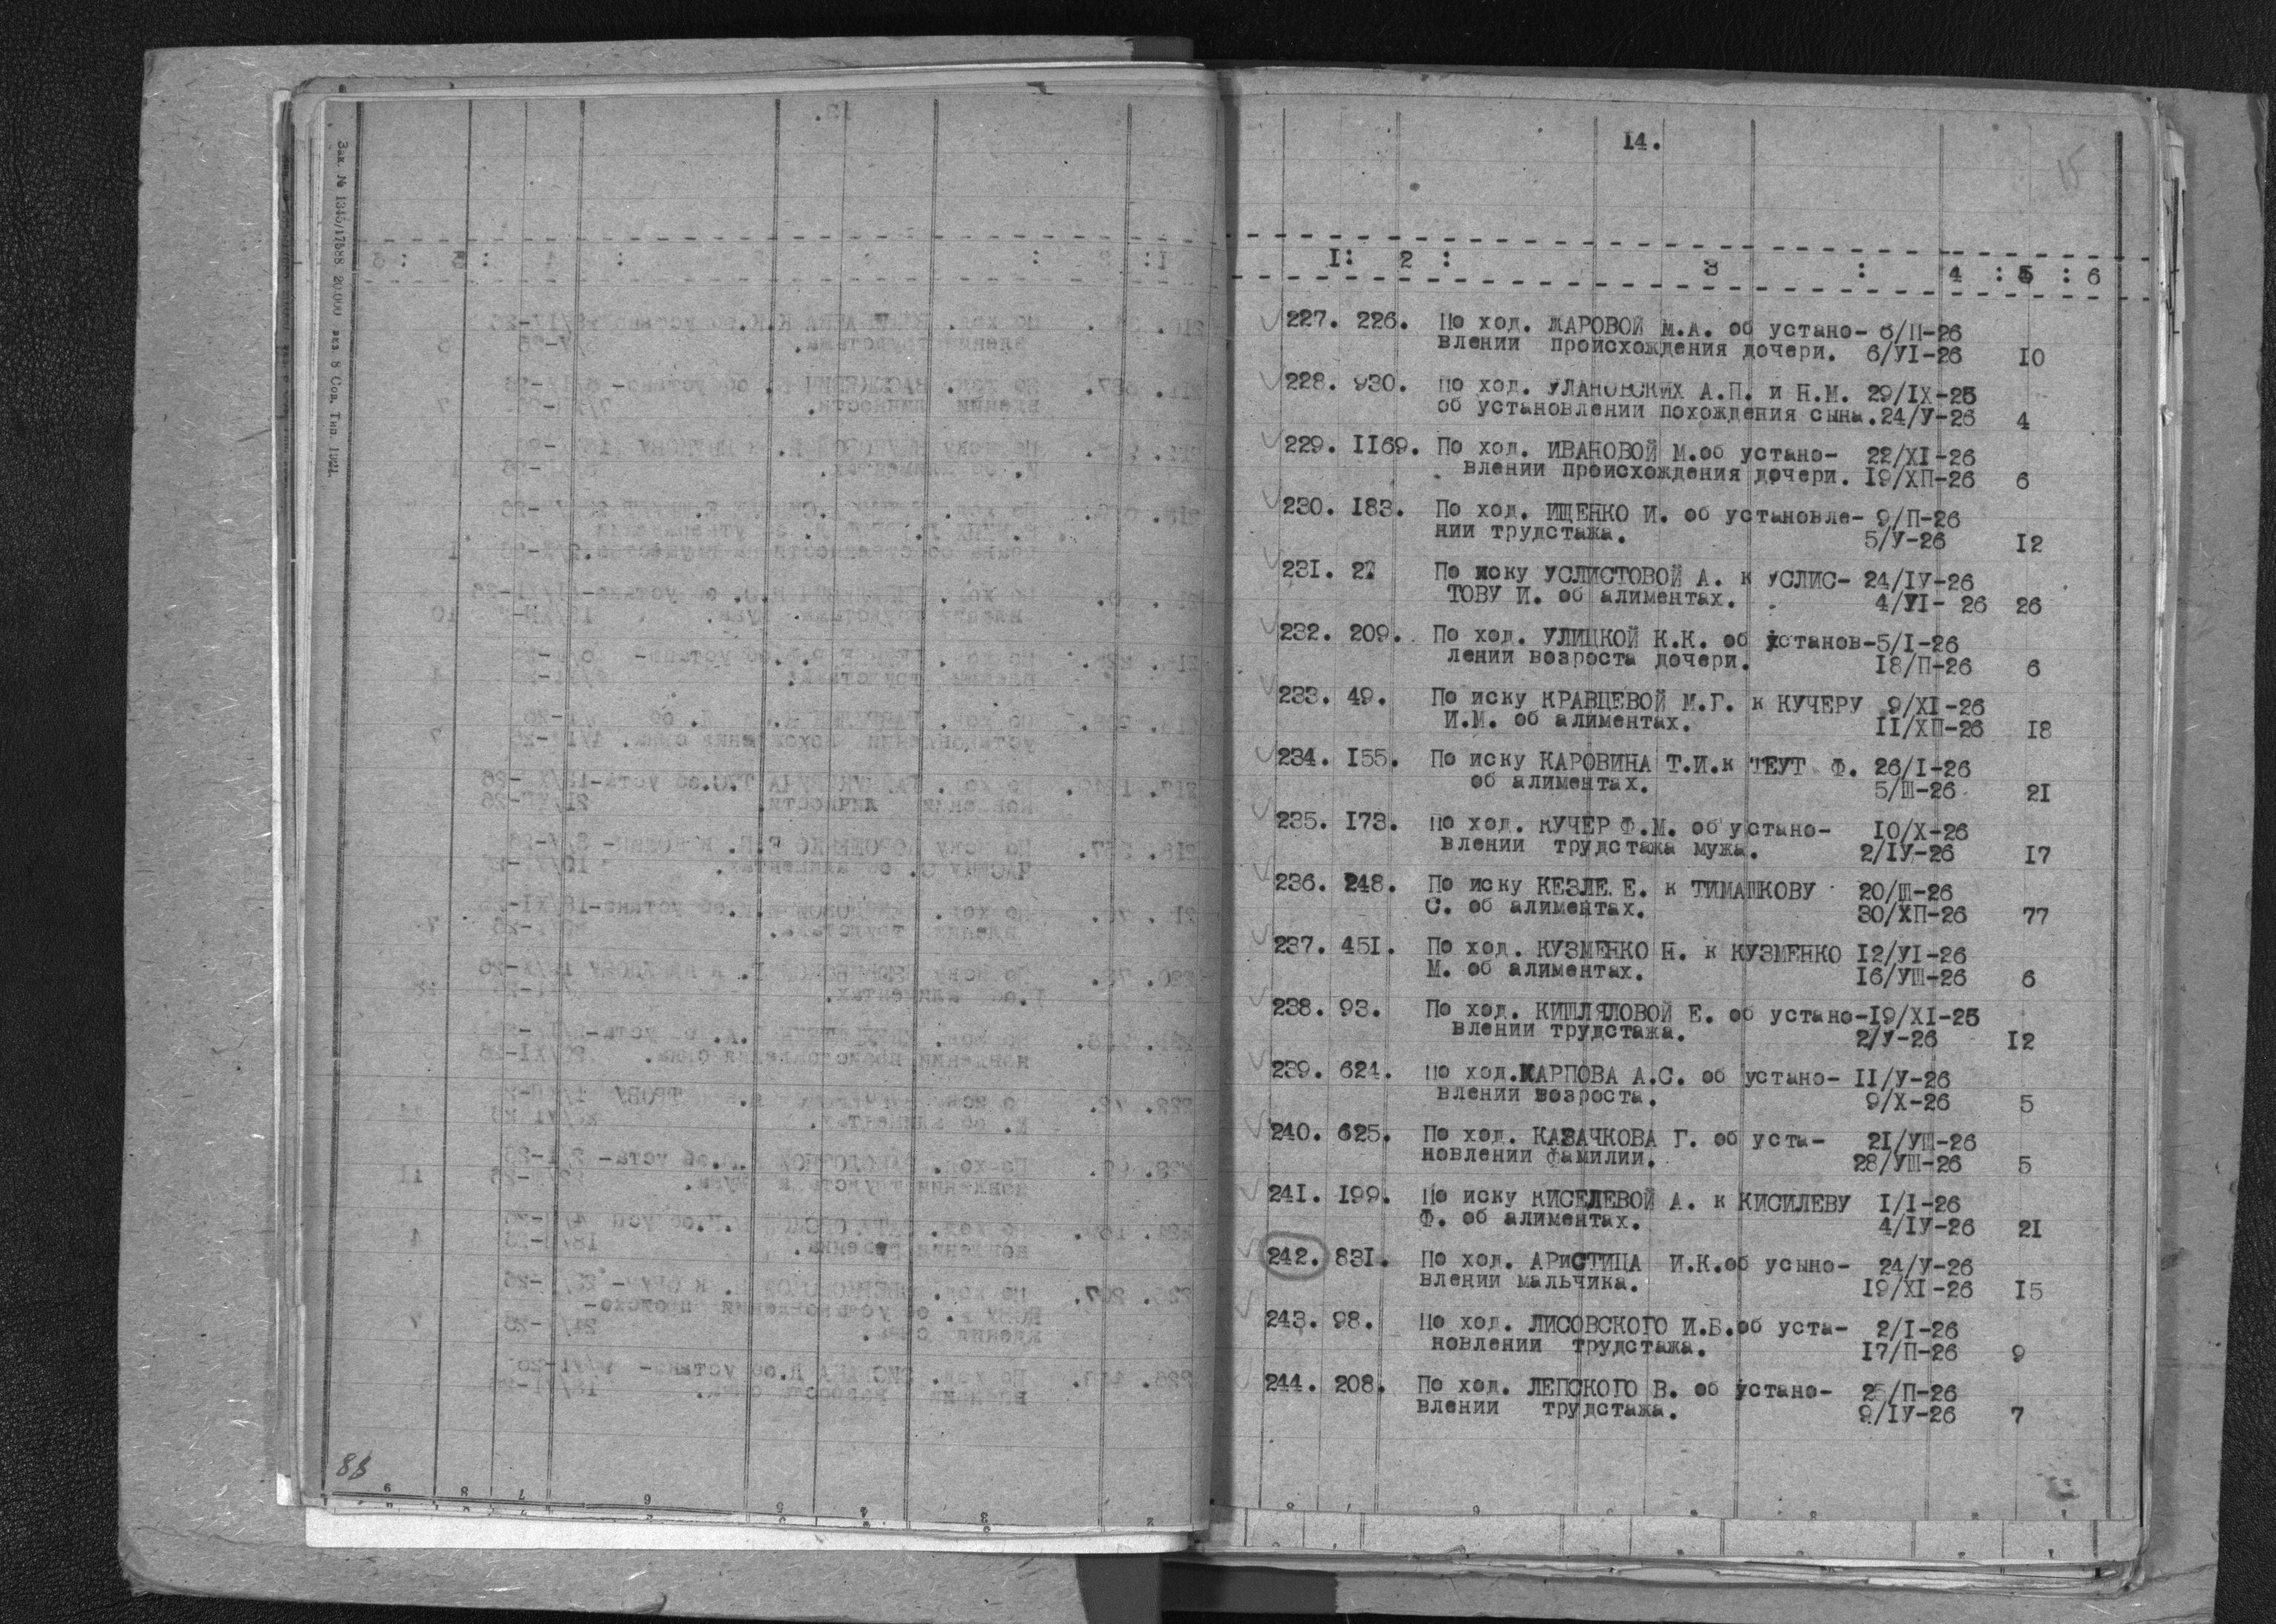 Зак. № 1345/17588 20.000 экз. 8 Сов. Тип. 1921.
88
14.
15
I: 2 : 3 : 4 : 5 : 6
227. 226. По ход. ЖАРОВОЙ М.А. об устано- 6/П-26
влении происхождения дочери. 6/УI-26 10
228. 930. По ход. УЛАНОВСКИХ А.П. и Н.М. 29/IХ-25
об установлении похождения сына. 24/У-26 4
229. II69. По ход. ИВАНОВОЙ М.об устано- 22/XI-26
влении происхождения дочери. I9/ХП-26 6
230. I83. По ход. ИЩЕНКО И. об установле- 9/П-26
нии трудстажа. 5/У-26 I2
231. 27 По иску УСЛИСТОВОЙ А. к УСЛИС- 24/IУ-26
ТОВУ И. об алиментах. 4/УI- 26 26
232. 209. По ход. УЛИЦКОЙ К.К. об установ-5/I-26
лении возроста дочери. I8/П-26 6
233. 49. По иску КРАВЦЕВОЙ М.Г. к КУЧЕРУ 9/XI-26
И.М. об алиментах. II/ХП-26 I8
234. I55. По иску КАРОВИНА Т.И.к ТЕУТ Ф. 26/I-26
об алиментах. 5/Ш-26 2I
235. I73. По ход. КУЧЕР Ф.М. об устано- I0/Х-26
влении трудстажа мужа. 2/IУ-26 I7
236. 248. По иску КЕЗЛЕ Е. к ТИМАШКОВУ 20/Ш-26
С. об алиментах. 30/ХП-26 77
237. 45I. По ход. КУЗМЕНКО Н. к КУЗМЕНКО I2/УI-26
М. об алиментах. I6/УШ-26 6
238. 93. По ход. КИШЛЯЛОВОЙ Е. об устано-I9/XI-25
влении трудстажа. 2/У-26 I2
239. 624. По ход.КАРПОВА А.С. об устано- II/У-26
влении возроста. 9/Х-26 5
240. 625. По ход. КАЗАЧКОВА Г. об уста- 2I/УШ-26
новлении фамилии. 28/УШ-26 5
24I. I99. По иску КИСЕЛЕВОЙ А. к КИСИЛЕВУ I/I-26
Ф. об алиментах. 4/IУ-26 2I
242. 83I. По ход. АРиСТИЦА И.К.об усыно- 24/У-26
влении мальчика. I9/XI-26 I5
243. 98. По ход. ЛИСОВСКОГО И.Б.об уста- 2/I-26
новлении трудстажа. I7/П-26 9
244. 208. По ход. ЛЕПСКОГО В. об устано- 25/П-26
влении трудстажа. 9/IУ-26 7